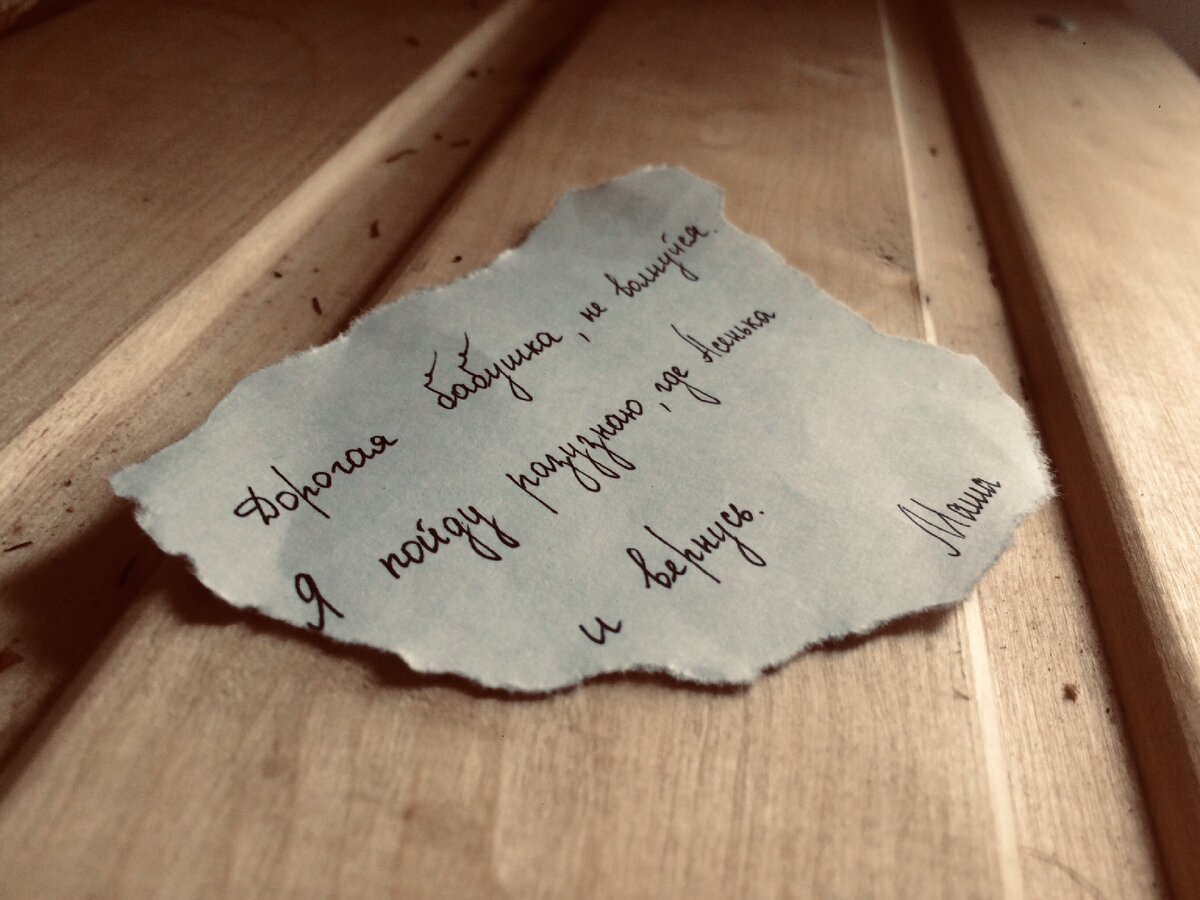 Дорогая бабушка, не волнуйся.
Я пойду разузнаю, где Асенька
и вернусь.
Маша